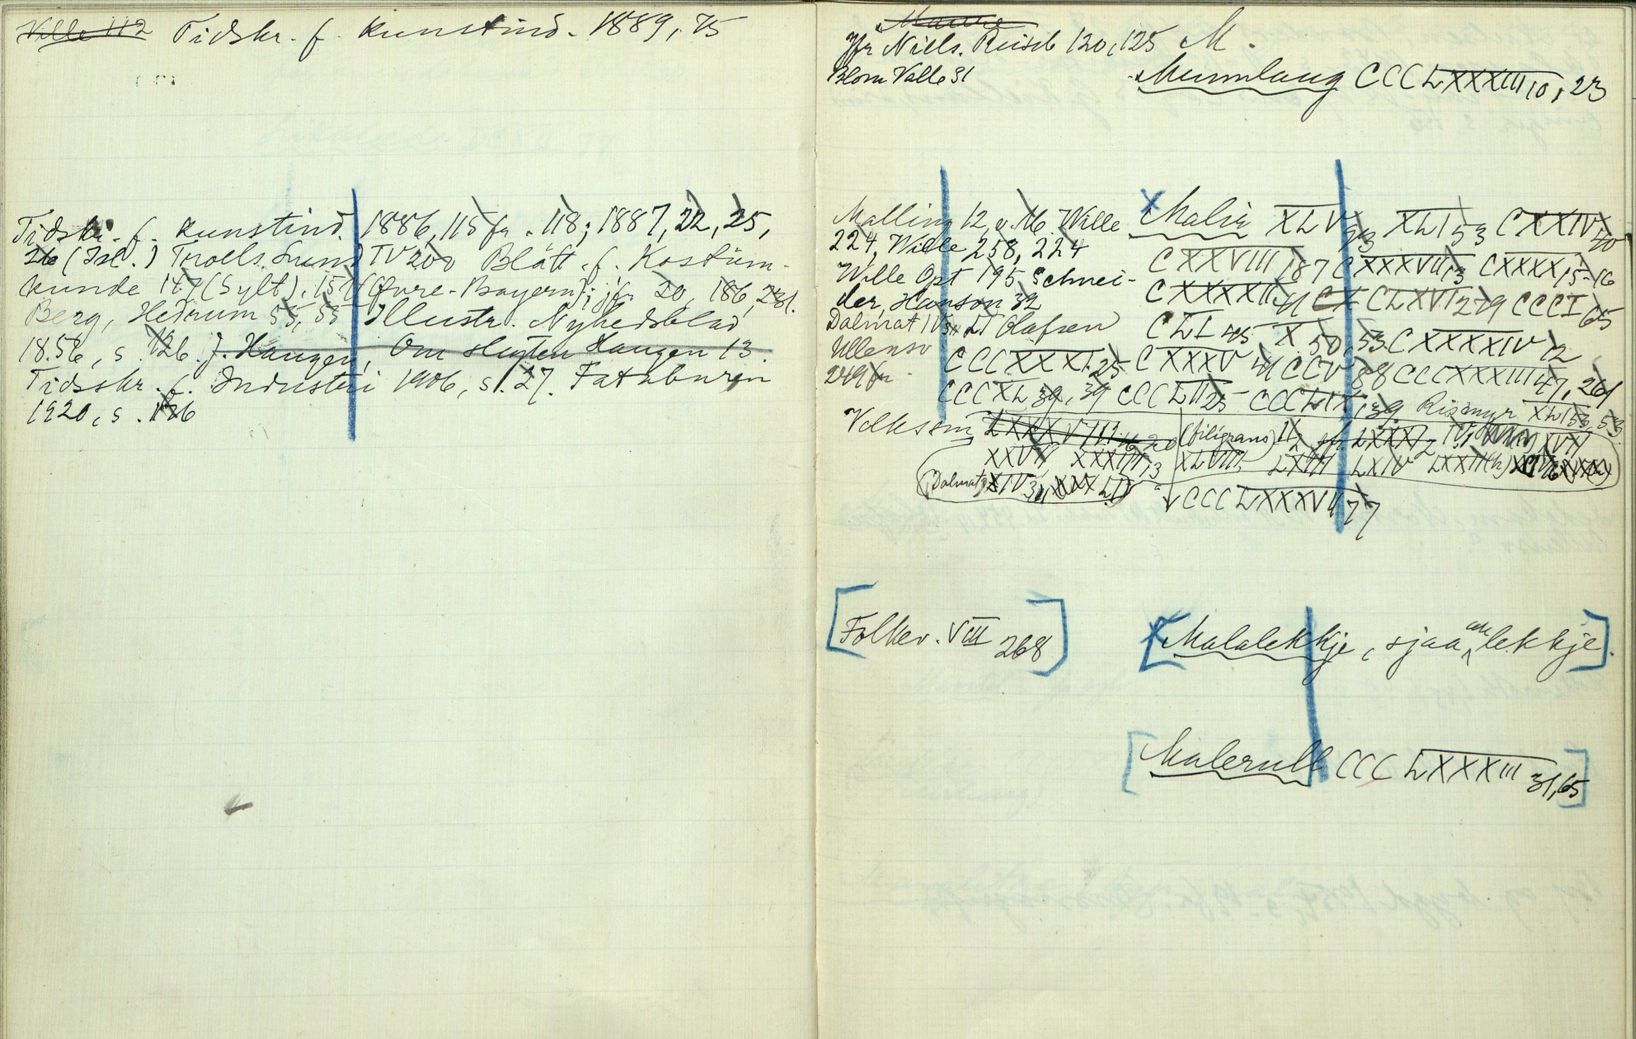 Wille 112 Tidskr. f. Kunstind. 1889, 75
Tidskr. f. Kunstind. 1886, 115 fr. 118; 1887, 22, 25,
26 (Isl.) Troels. Lund IV 200 Blätt. f. Kostüm-
kunde 147 (Sylt), 157 (Øvre-Bayern) jfr. 20, 186, 281.
Berg, Hedrum 55, 55 Illustr. Nyhedsblad
1856, s. 126. J. Haugen, Om slegten Haugen 13.
Tidsskr. f. Industri 1906, s. 27. Fataburen
1920, s. 126
Jfr Niels. Reiseb 120, 125 M.
Blom Valle 31
CCCLXXXIII 10, 23
Malling 12, o. M. Wille
224, Wille 258, 224
Wille Opt 195 Schnei-
der, Hanson 32
Dalmat IV LI Olafsen
Ullensv
249 fr.
Malir XLV 93 XLI 53 CXXIV 40
CXXVIII 187 CXXXVII 13 CXXXX 15-16
CXXXXII 41 CX CLXVI 279 CCCI 65
CLI 45 X 50, 53 CXXXXIV 12
CCCXXXI 25 CXXXV 41 CCV 88 CCCXXXIII 47, 261
CCCXL 39, 39 CCCLII 25 CCCLIX 139 Rismyr XLI 53, 53
Velksom LXXXVIII 16 20 (filigrans) II, jfr LXXXI 2
XXVI XXXIII 13 XLVIII LXIII LXIV LXXII
(Dalmat XIV 311
CCCLXXXVII 77
[Folkev. VIII 268]
[Malalekkje, sjaa lekkje].
[Malerull CCCLXXXIII 31, 65]